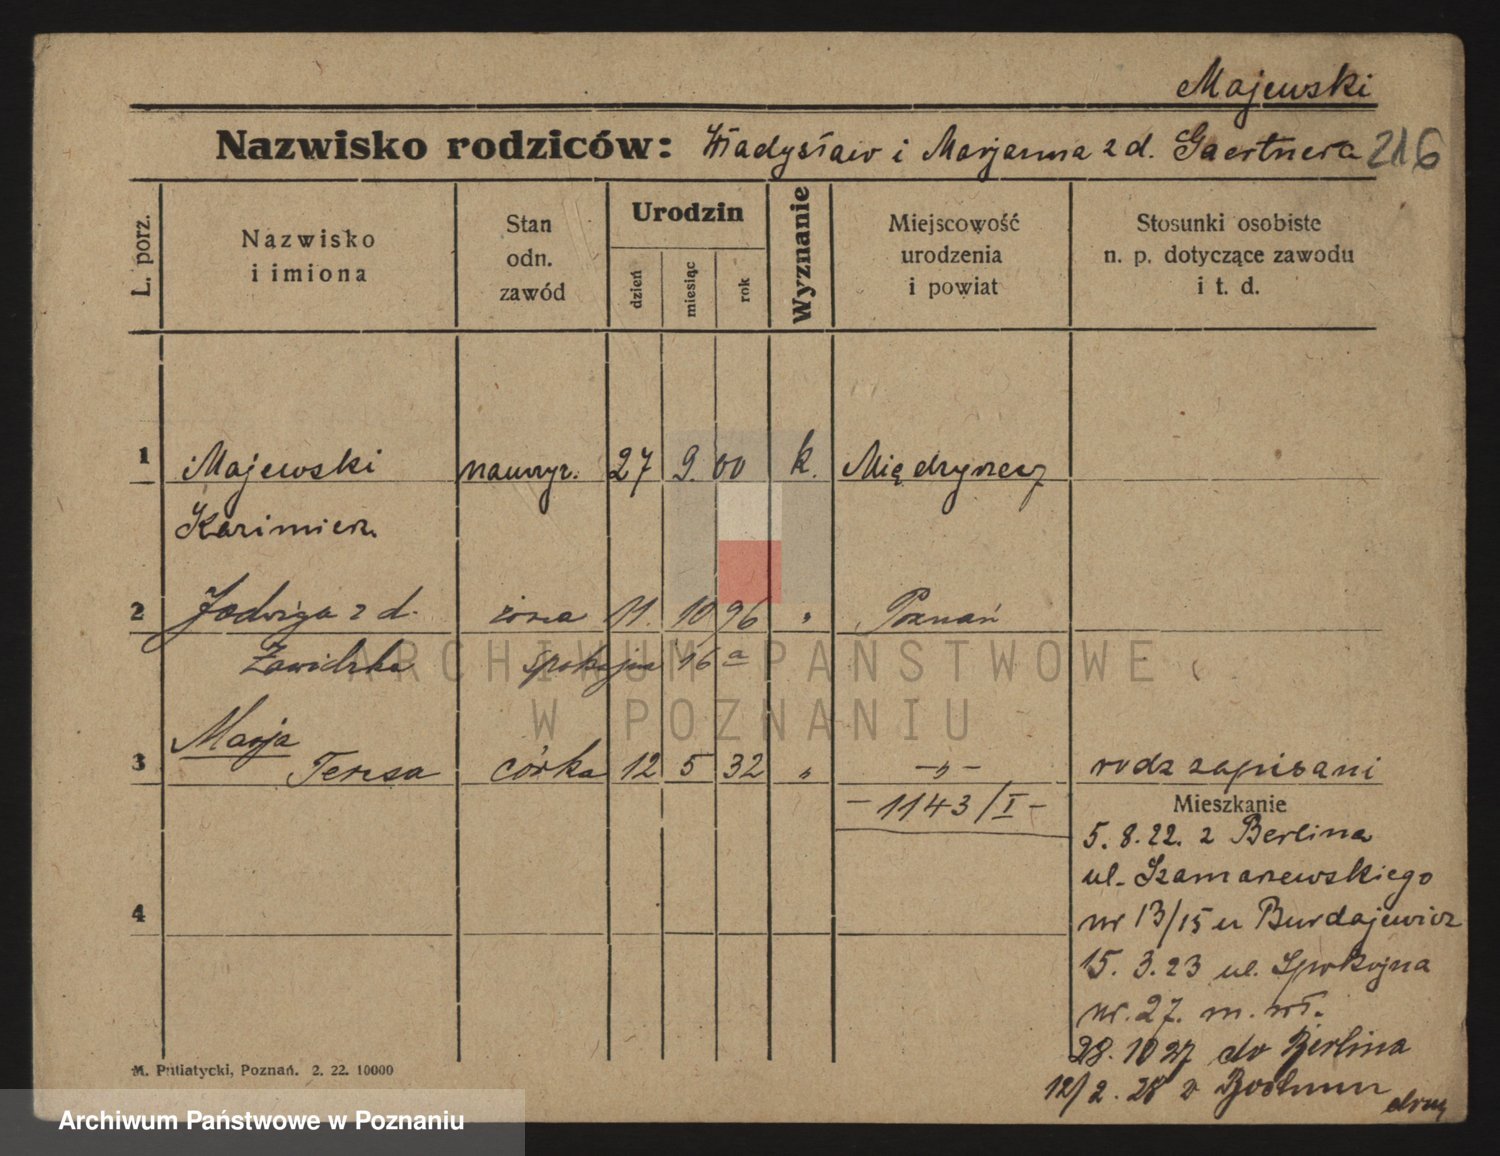 Majewski
Nazwisko rodziców: Władysław i Marjanna z d. Gaertnera 216
L. porz.
Nazwisko i imiona
Stan odn. zawód
Urodzin
dzień miesiąc rok
Wyznanie
Miejscowość urodzenia i powiat
Stosunki osobiste n. p. dotyczące zawodu i t. d.
1 Majewski nauczyc. 27 9. 00 k. Międzyrzecz
Kazimierz
2 Jadwiga z d. żona 11. 10 96 " Poznań
Zawidzka Spokojna 16 a
Marja
3 Teresa córka 12 5 32 " -"- rodz zapisani
-1143/I-
Mieszkanie
5. 8. 22. z Berlina
ul. Szamarzewskiego
4 nr 13/15 u Burdajewicz
15. 3. 23 ul. Spokojna
nr. 27. m. wł.
28. 10 27 do Berlina
12/2. 28 z Bochum
M. Putiatycki, Poznań. 2. 22. 10000
ARCHIWUM PAŃSTWOWE
W POZNANIU
Archiwum Państwowe w Poznaniu